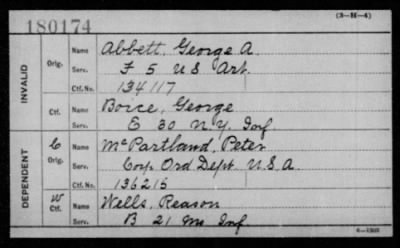 180174
(3-H-4)
INVALID
Orig.
Name Abbett, George A.
Serv. F 5 U S Art.
Ctf. No. 134117
Ctf.
Name Boice, George
Serv. E 30 N.Y. Inf
DEPENDENT
C
Orig.
Name McPartland, Peter
Serv. Corp Ord Dept U.S.A.
Ctf. No. 136215
W
Ctf.
Name Wells, Reason
Serv. B 21 Mo Inf